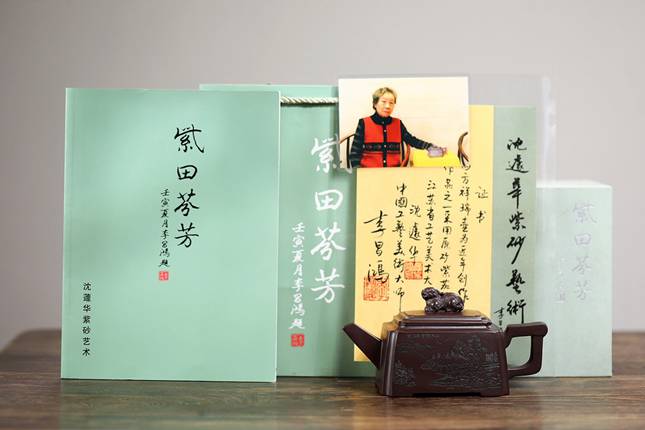 紫田芬芳
壬寅夏月李昌鸿题
沈蘧华紫砂艺术
紫田芬芳
壬寅夏月李昌鸿题
证书
方祥瑞壶为近年创作
作品之一采用原矿紫茄
江苏省工艺美术大
沈蘧华
中國工艺美术大师
李昌鸿
沈蘧華紫砂藝術
李昌
紫田芬芳